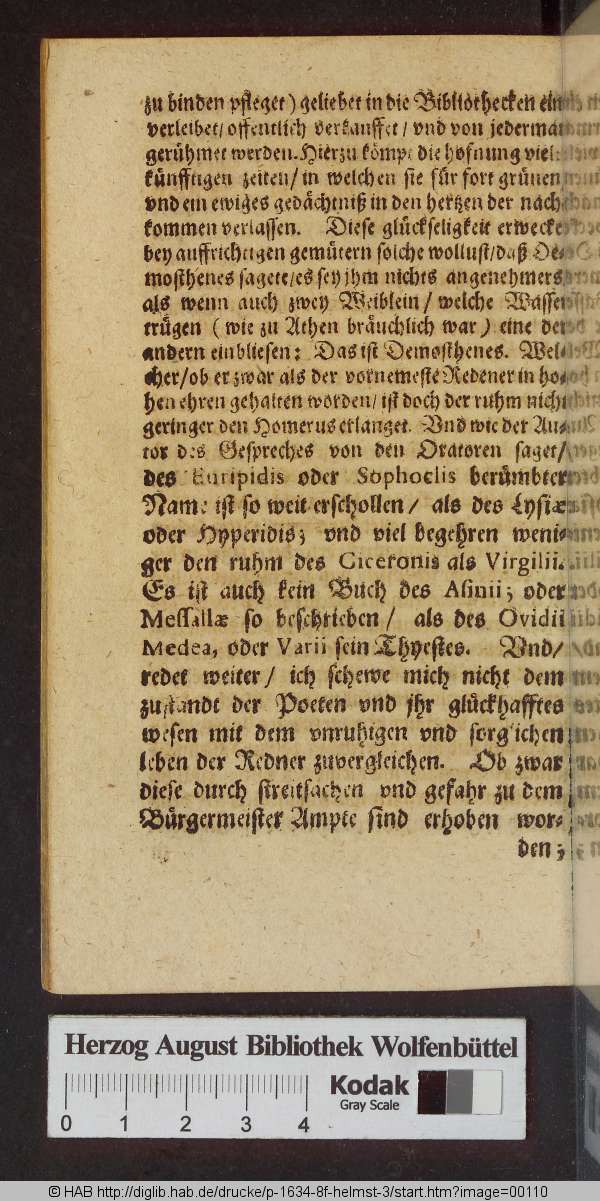 zu binden pfleget) geliebet in die Bibliothecken ein
verleibet/ offentlich verkauffet / vnd von jederman
gerühmet werden. Hierzu kömpt die hofnung viel
künfftigen zeiten/ in welchen sie für fort grünen
vnd ein ewiges gedächtniß in den hertzen der nach
kommen verlassen. Diese glückseligkeit erwecke
bey auffrichtigen gemütern solche wollust/ daß De-
mosthenes sagete/ es sey jhm nichts angenehmers
als wenn auch zwey Weiblein / welche Wasser
trügen ( wie zu Athen bräuchlich war ) eine der
andern einbliesen: Das ist Demosthenes. Wel-
cher/ ob er zwar als der vornemeste Redener in ho-
hen ehren gehalten worden/ ist doch der ruhm nicht
geringer den Homerus erlanget. Vnd wie der Au-
tor des Gespreches von den Oratoren saget/
des Euripidis oder Sophoclis berümbter
Name ist so weit erschollen / als des Lysiæ
oder Hyperidis; vnd viel begehren weni-
ger den ruhm des Ciceronis als Virgilii.
Es ist auch kein Buch des Asinii; oder
Messallæ so beschrieben / als des Ovidii
Medea, oder Varii sein Thyestes. Vnd/
redet weiter / ich schewe mich nicht dem
zustandt der Poeten vnd jhr glückhafftes
wesen mit dem vnruhigen vnd sorglichen
leben der Redner zuvergleichen. Ob zwar
diese durch streitsachen vnd gefahr zu dem
Bürgermeister Ampte sind erhoben wor-
den;
Herzog August Bibliothek Wolfenbüttel
Kodak
Gray Scale
0 1 2 3 4
© HAB http://diglib.hab.de/drucke/p-1634-8f-helmst-3/start.htm?image=00110